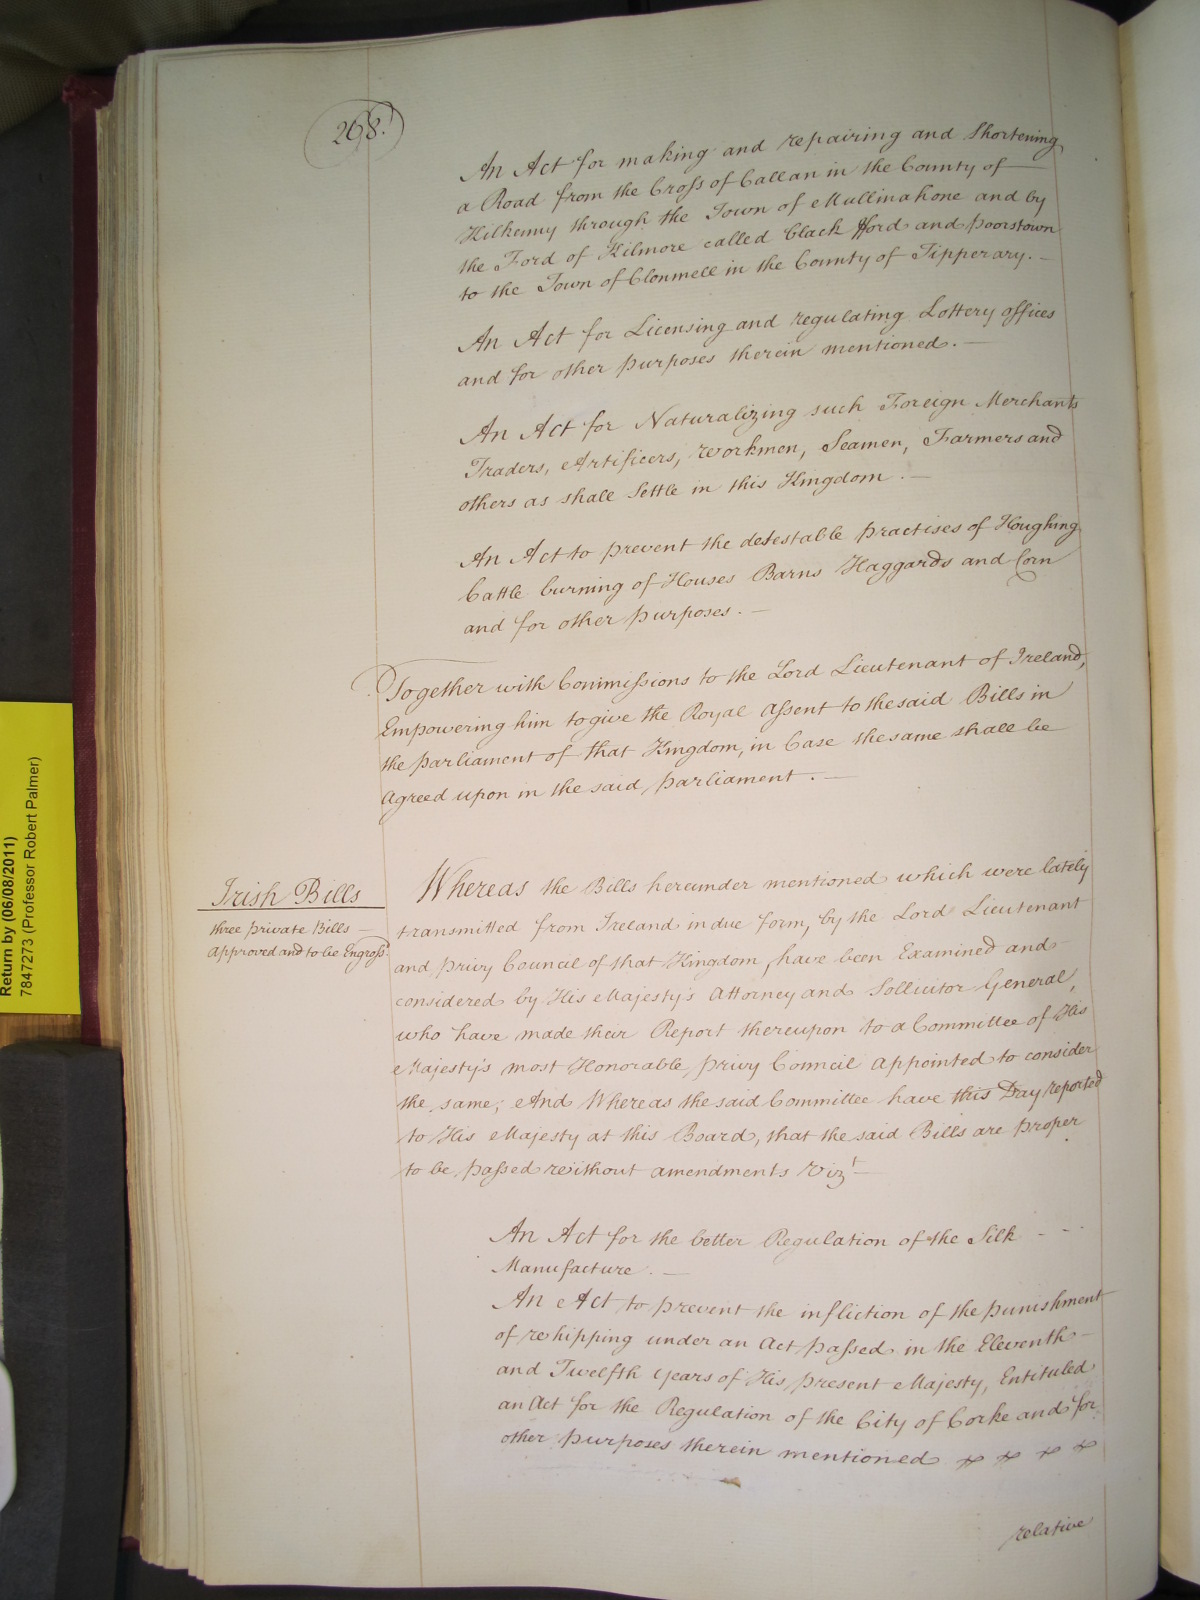 268.
An Act for making and repairing and Shortening
a Road from the Cross of Callan in the County of
Kilkenny through the Town of Mullinahone and by
the Ford of Kilmore called black fford and poorstown
to the Town of Clonmell in the County of Tipperary. —
An Act for Licensing and regulating Lottery offices
and for other purposes therein mentioned. —
An Act for Naturalizing such Foreign Merchants
Traders, Artificers, workmen, Seamen, Farmers and
others as shall Settle in this Kingdom. —
An Act to prevent the detestable practises of Houghing
Cattle burning of Houses Barns Haggards and Corn
and for other purposes. —
Together with Commissions to the Lord Lieutenant of Ireland,
Empowering him to give the Royal Assent to the said Bills in
the parliament of that Kingdom, in Case the same shall be
Agreed upon in the said parliament. —
Irish Bills
three private Bills —
Approved and to be Engross'd
Whereas the Bills hereunder mentioned which were lately
transmitted from Ireland in due form, by the Lord Lieutenant
and privy Council of that Kingdom, have been Examined and
considered by His Majesty's Attorney and Sollicitor General,
who have made their Report thereupon to a Committee of His
Majesty's most Honorable privy Council appointed to consider
the same; And Whereas the said Committee have this Day reported
to His Majesty at this Board, that the said Bills are proper
to be passed without amendments Vizt —
An Act for the better Regulation of the Silk - - -
Manufacture. —
An Act to prevent the infliction of the punishment
of whipping under an Act passed in the Eleventh —
and Twelfth years of His present Majesty, Entituled
an Act for the Regulation of the City of Corke and for
other purposes therein mentioned
relative
Return by (06/08/2011)
7847273 (Professor Robert Palmer)